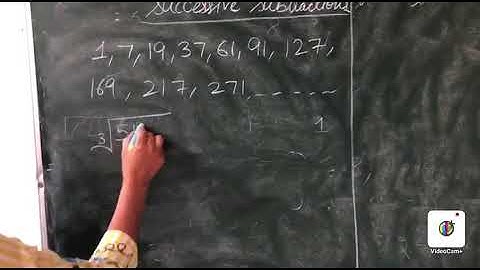 successive subtractions
1, 7, 19, 37, 61, 91, 127,
169, 217, 271,
3 51
1
VideoCam+